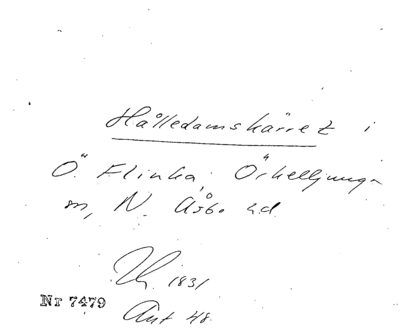 Hålledamskärret i
Ö. Flinka, Örkelljunga
sn, N. Åsbo hd.
1831
Nr 7479
Ant 48.